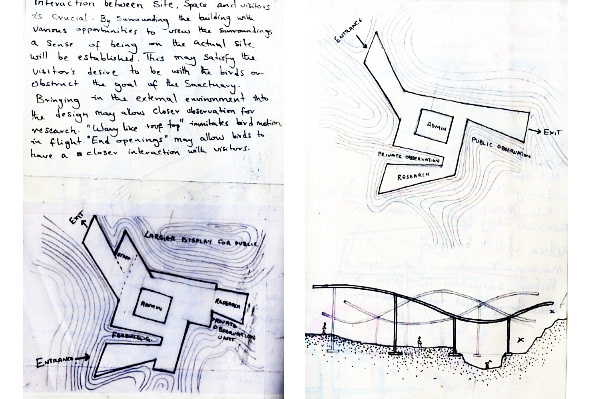 Interaction between Site, Space and visitors
is Crucial. By Surrounding the building with
various opportunities to views the surroundings
a Sense of being on the actual site
will be established. This may satisfy the
visitor's desire to be with the birds or
obstruct the goal of the Sanctuary.
Bringing in the external environment into
the design may allow closer observation for
research. "Wavy like roof top" immitates bird motion
in flight "End openings" may allow birds to
have a closer interaction with visitors.
EXIT
LARGER DISPLAY FOR PUBLIC
ADMIN
RESEARCH
PRIVATE
OBSERVATION
ENTRANCE
ENTRANCE
ADMIN
EXIT
PUBLIC OBSERVATION
PRIVATE OBSERVATION
RESEARCH
x
x